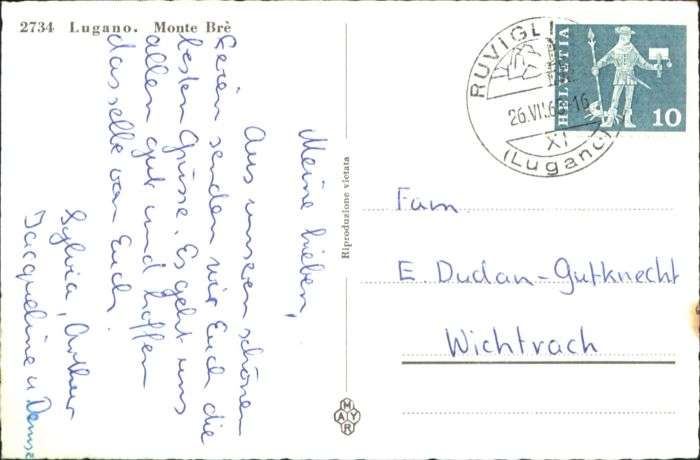 2734 Lugano. Monte Brè
Meine lieben,
Aus unseren schönen
Ferien senden wir Euch die
besten Grüsse. Es geht uns
allen gut und hoffen
dasselbe von Euch.
Sylvia, Arthur
Jacqueline u Denise
Riproduzione vietata
MAYR
RUVIGLI
26.VII.6 -16
XI
(Lugano)
HELVETIA
10
Fam.
E. Dudan-Gutknecht
Wichtrach